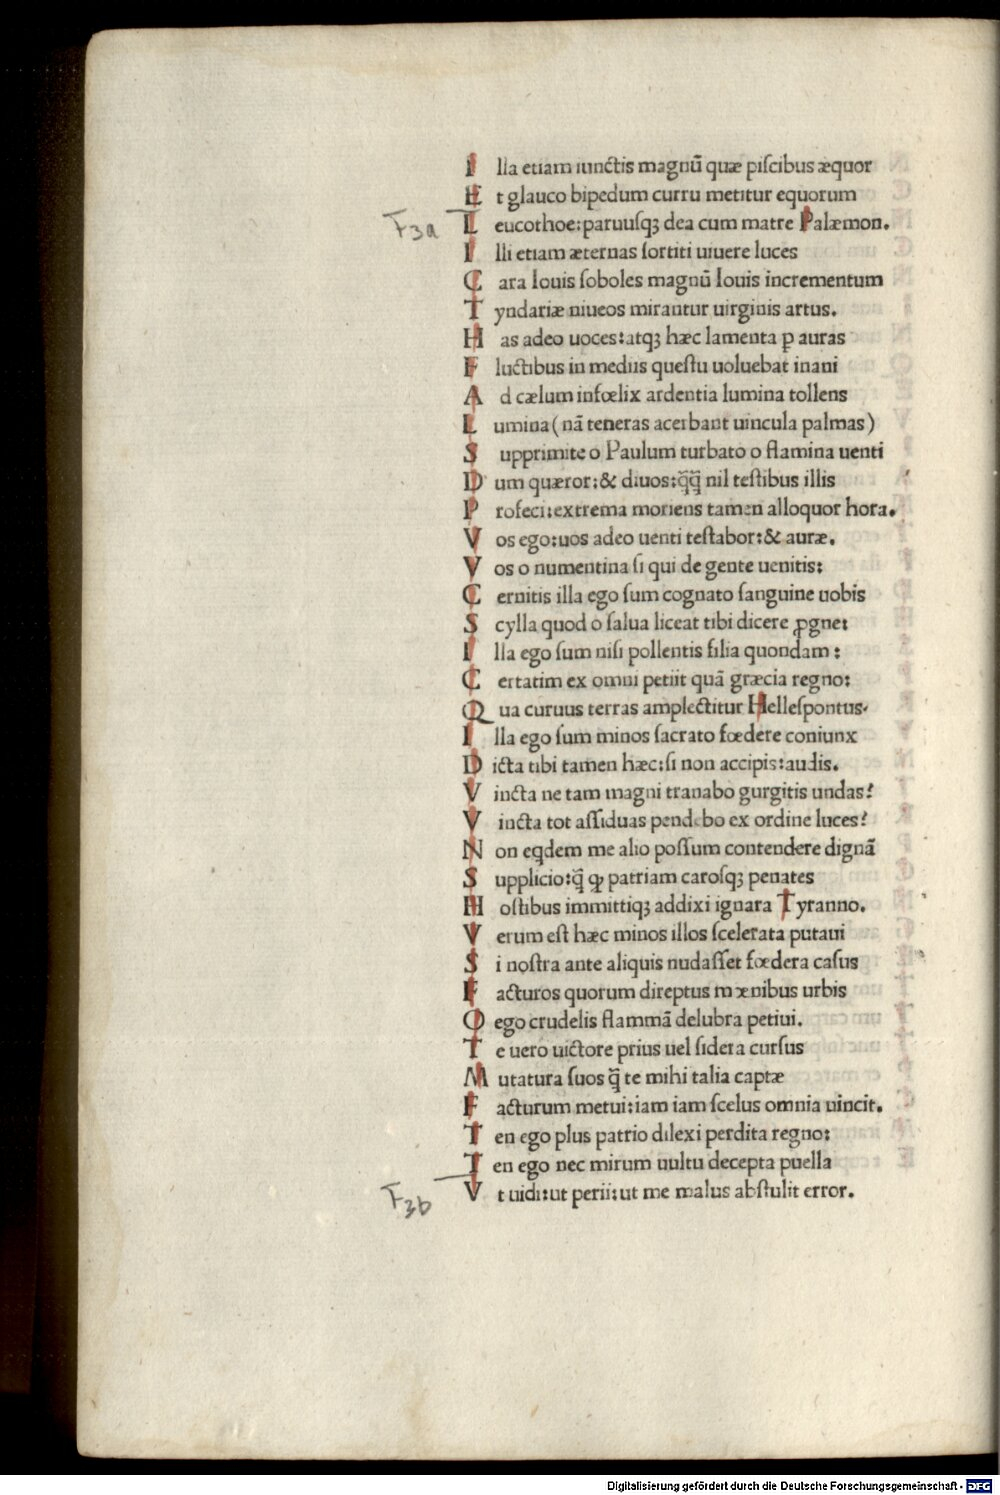 I lla etiam iunctis magnū quæ piſcibus æquor
E t glauco bipedum curru metitur equorum
F3a L eucothoe:paruuſqꝫ dea cum matre Palæmon.
I lli etiam æternas ſortiti uiuere luces
C ara Iouis ſoboles magnū Iouis incrementum
T yndariæ niueos mirantur uirginis artus.
H as adeo uoces:atqꝫ hæc lamenta ꝑ auras
F luctibus in mediis queſtu uoluebat inani
A d cælum infœlix ardentia lumina tollens
L umina (nā teneras acerbant uincula palmas)
S upprimite o Paulum turbato o flamina uenti
D um quæror:& diuos:q̄q̄ nil teſtibus illis
P rofeci:extrema moriens tamen alloquor hora.
V os ego:uos adeo uenti teſtabor:& auræ.
V os o numentina ſi qui de gente uenitis:
C ernitis illa ego ſum cognato ſanguine uobis
S cylla quod o ſalua liceat tibi dicere ꝓgne:
I lla ego ſum niſi pollentis filia quondam:
C ertatim ex omni petiit quā græcia regno:
Q ua curuus terras amplectitur Helleſpontus.
I lla ego ſum minos ſacrato fœdere coniunx
D icta tibi tamen hæc:ſi non accipis:audis.
V incta ne tam magni tranabo gurgitis undas?
V incta tot aſſiduas pendebo ex ordine luces?
N on eqdem me alio poſſum contendere dignā
S upplicio:q̄ ꝙ patriam caroſqꝫ penates
H oſtibus immittiqꝫ addixi ignara Tyranno.
V erum eſt hæc minos illos ſcelerata putaui
S i noſtra ante aliquis nudaſſet fœdera caſus
F acturos quorum direptus mœnibus urbis
O ego crudelis flammā delubra petiui.
T e uero uictore prius uel ſidera curſus
M utatura ſuos q̄ te mihi talia captæ
F acturum metui:iam iam ſcelus omnia uincit.
T en ego plus patrio dilexi perdita regno:
T en ego nec mirum uultu decepta puella
F3b V t uidi:ut perii:ut me malus abſtulit error.
Digitalisierung gefördert durch die Deutsche Forschungsgemeinschaft - DFG